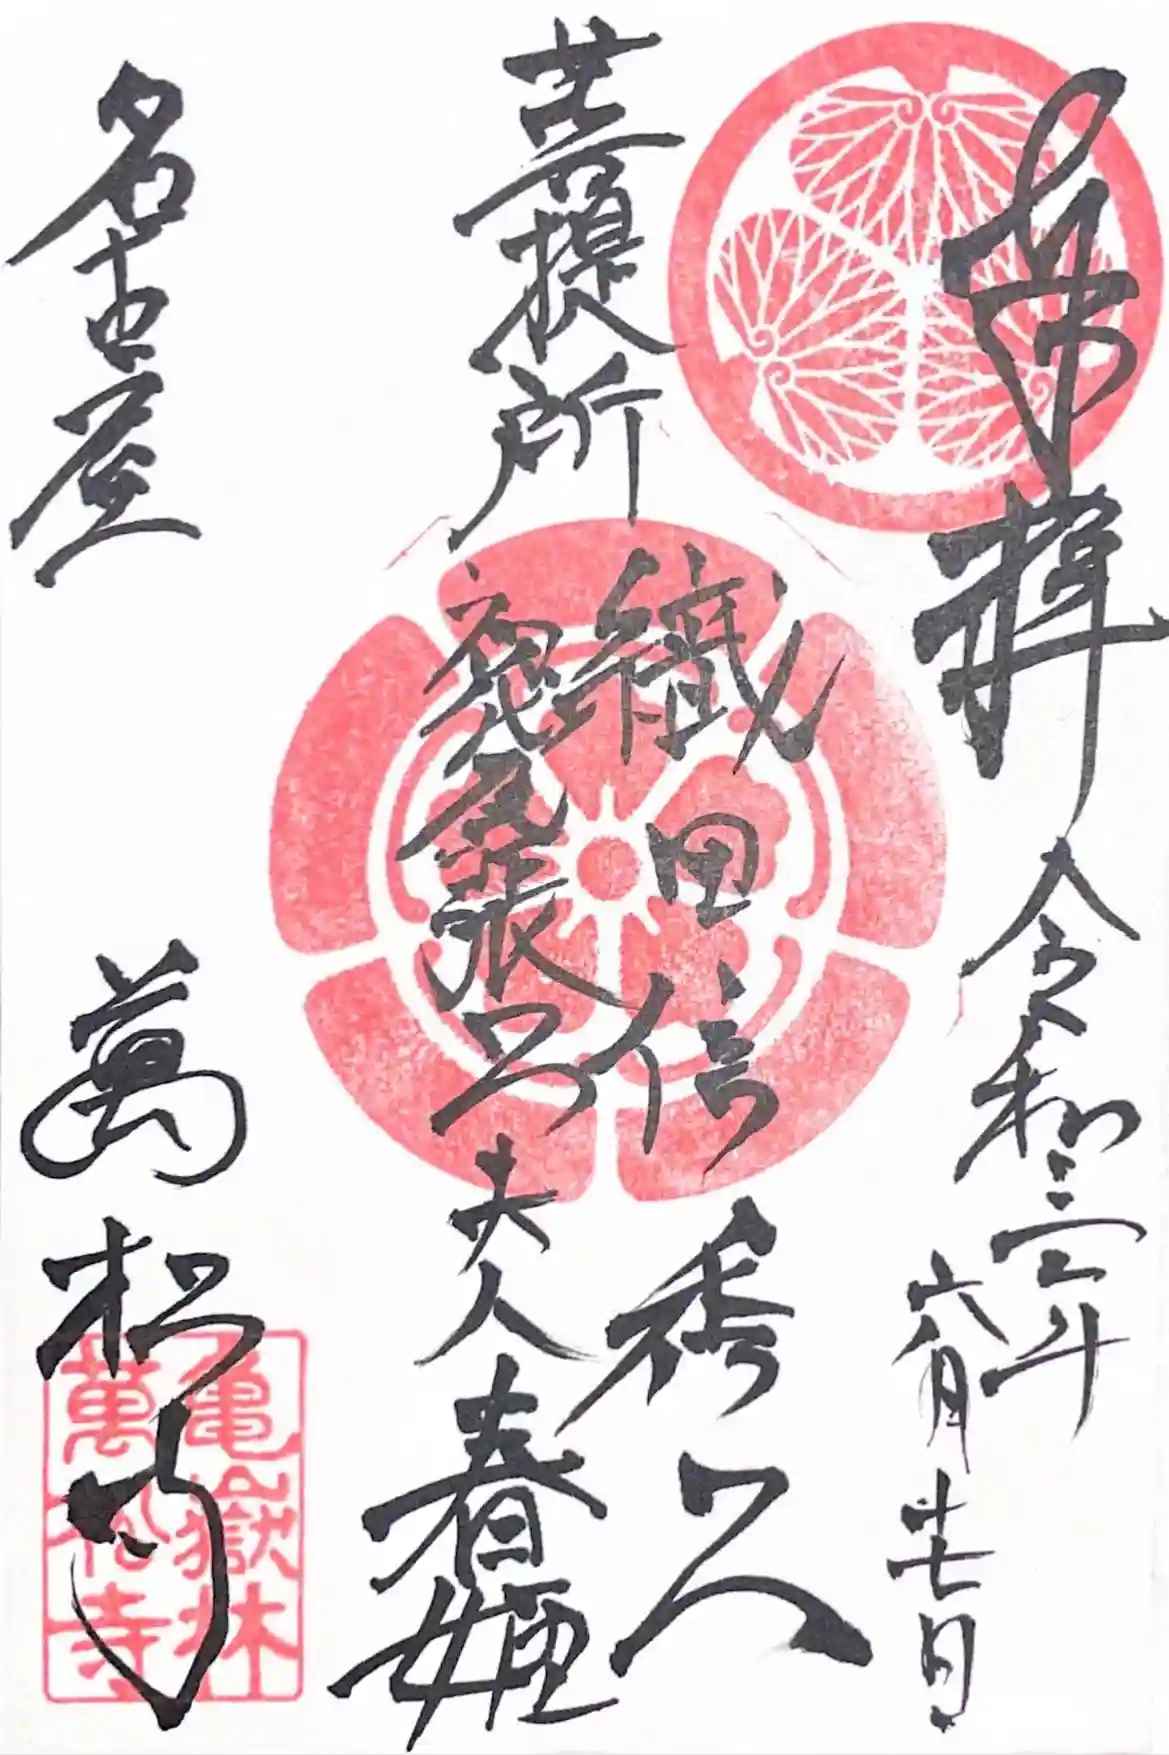 奉拝
令和三年
六月廿七日
菩提所
織田信秀公
初代尾張公夫人春姫
名古屋
萬松寺
亀嶽林
萬松寺